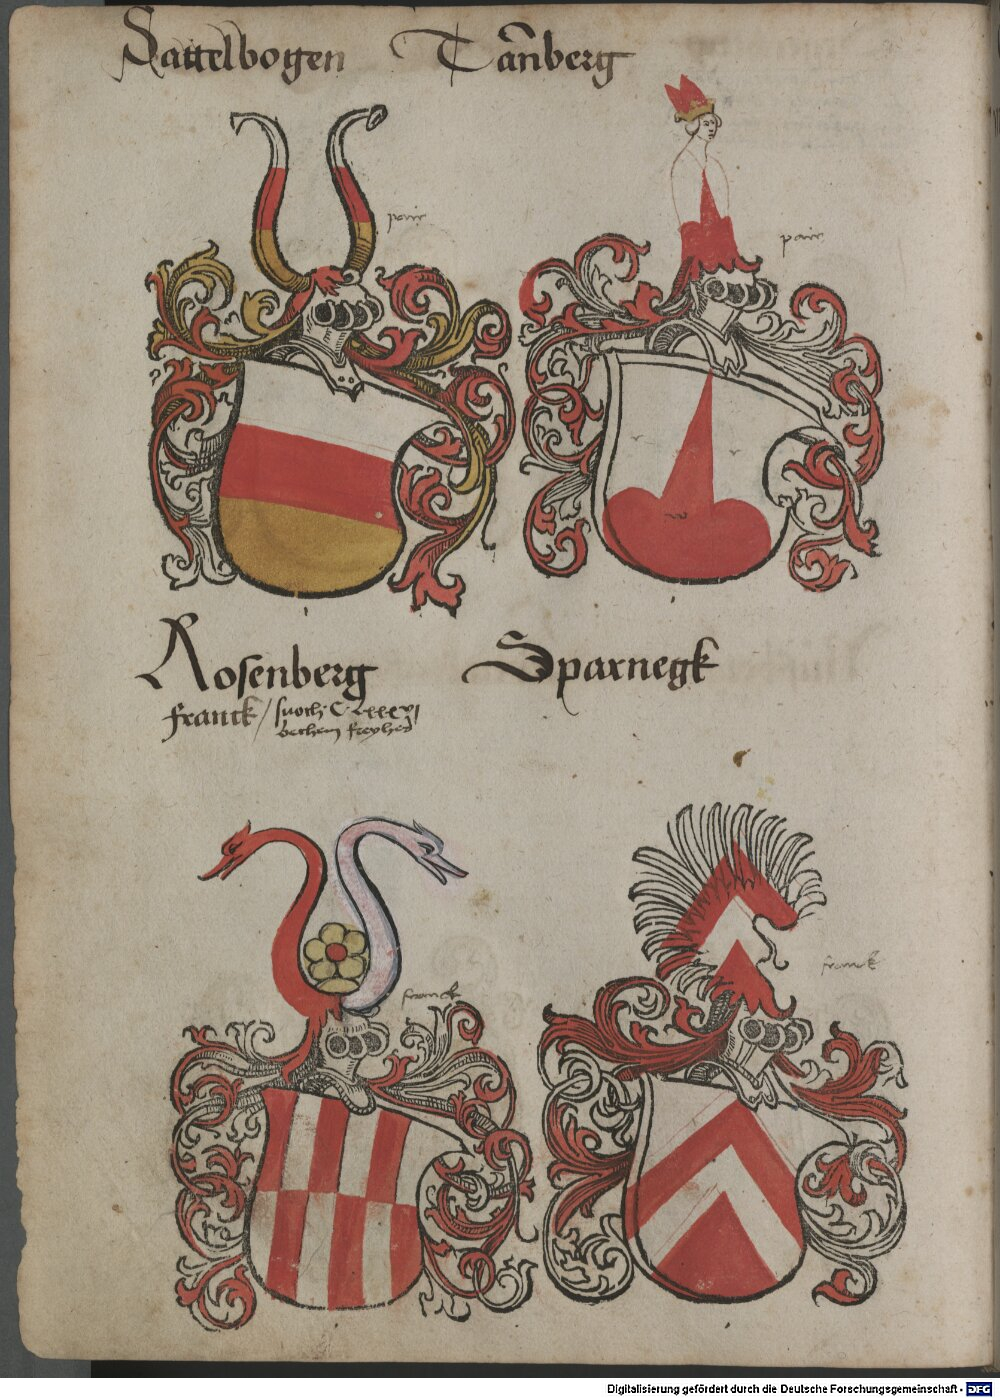 Sattelbogen Tañberg
pair
pair
Rosenberg Sparnegk
franck / suoch C
behem freyher
franck
franck
Digitalisierung gefördert durch die Deutsche Forschungsgemeinschaft - DFG